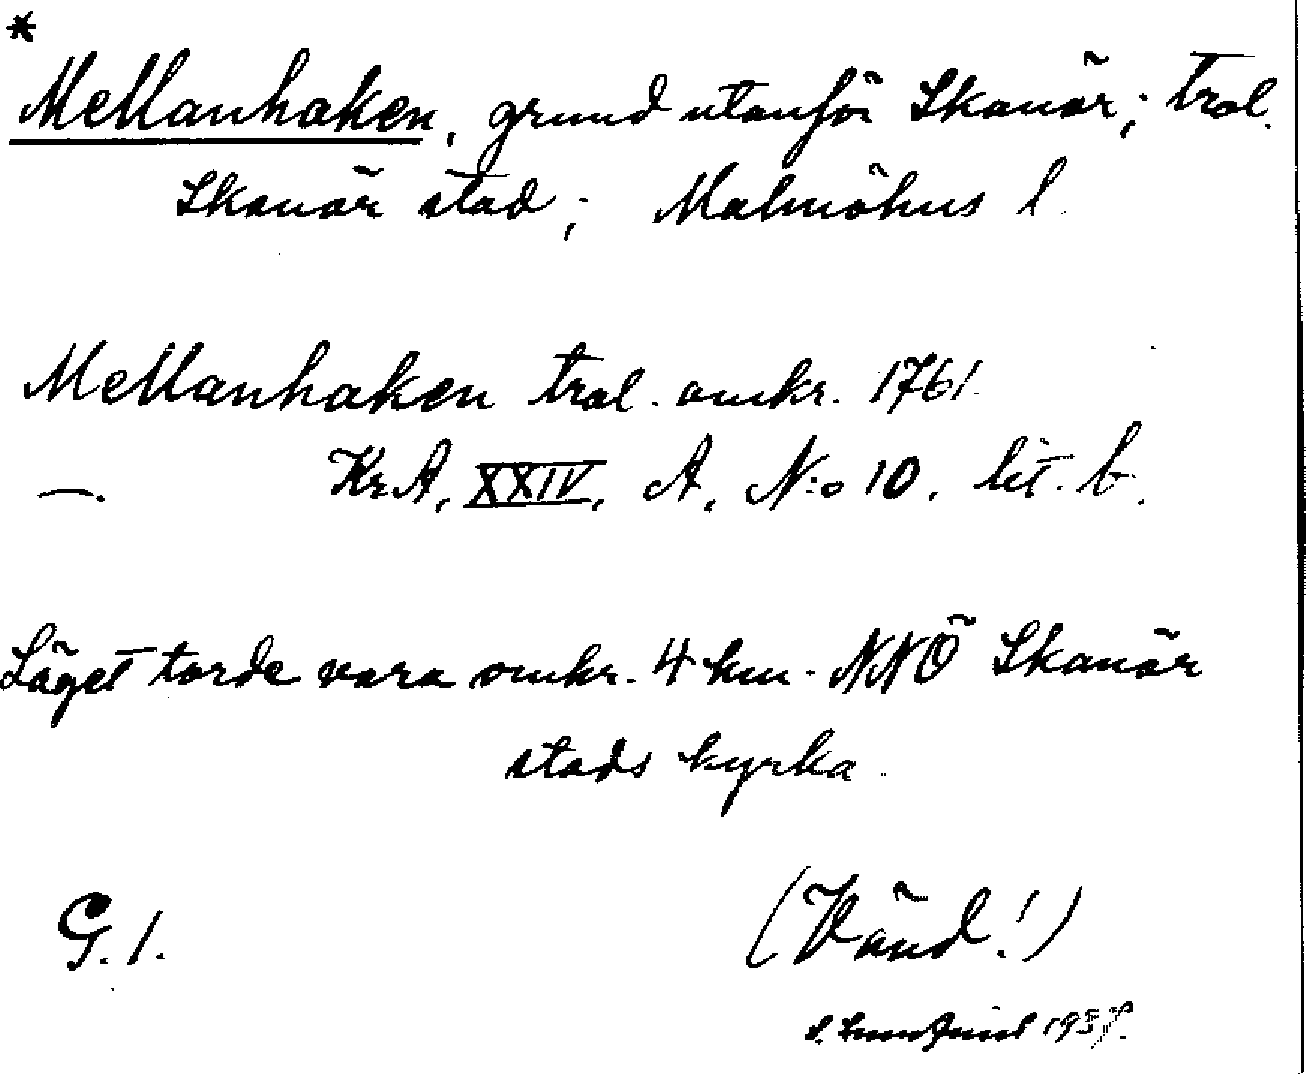 *
Mellanhaken, grund utanför Skanör; trol.
Skanör stad; Malmöhus l.
Mellanhaken trol. omkr. 1761.
—. Kr.A, XXIV, A, N:o 10, lit. b.
Läget torde vara omkr. 4 km. NNÖ Skanör
stads kyrka.
G. 1. (Vänd!)
1937.